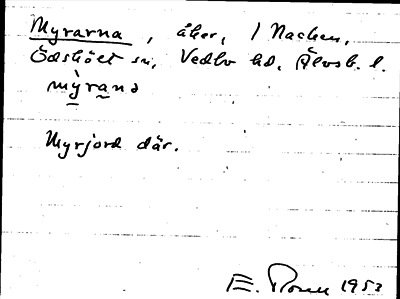 Myrarna, åker, / Nacken,
Ödskölt sn, Vedbo hd, Älvsb. l.
mỳrana
Myrjord där.
E. 1953